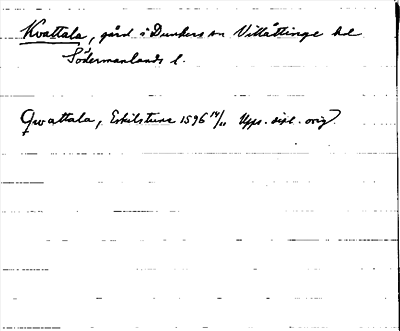 Kvattala, gård i Dunkers sn Villåttinge hd
Södermanlands l.
Qwattala, Eskilstuna 1596 14/11 Upps. dipl. orig.